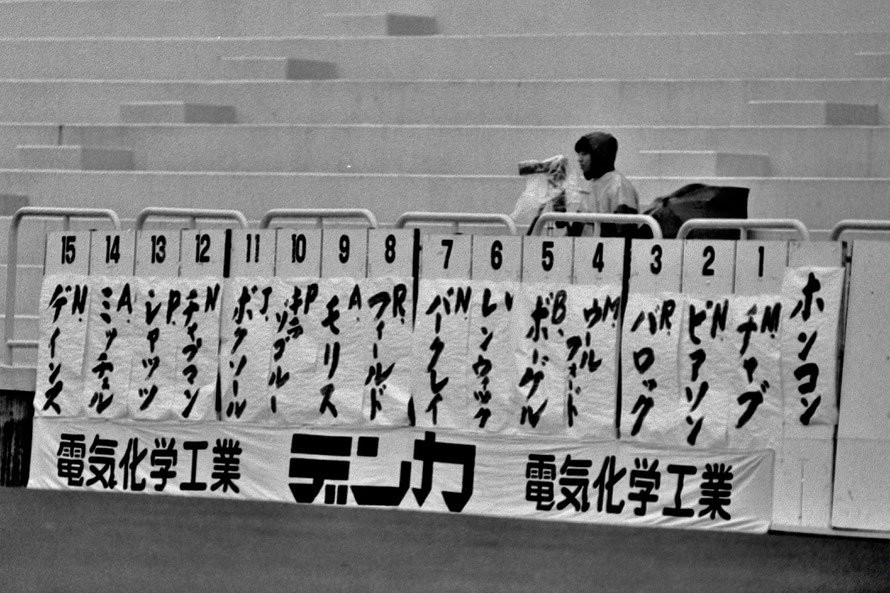 15 14 13 12 11 10 9 8 7 6 5 4 3 2 1
ホンコン
M.チャブ
N.ピアソン
R.バロック
M.ウールフォード
B.ボーゲル
レンウィック
N.バークレイ
R.フィールド
A.モリス
P.
J.ボクソール
N.チャプマン
P.シャッツ
A.ミッチェル
N.ゲインズ
電気化学工業 デンカ 電気化学工業